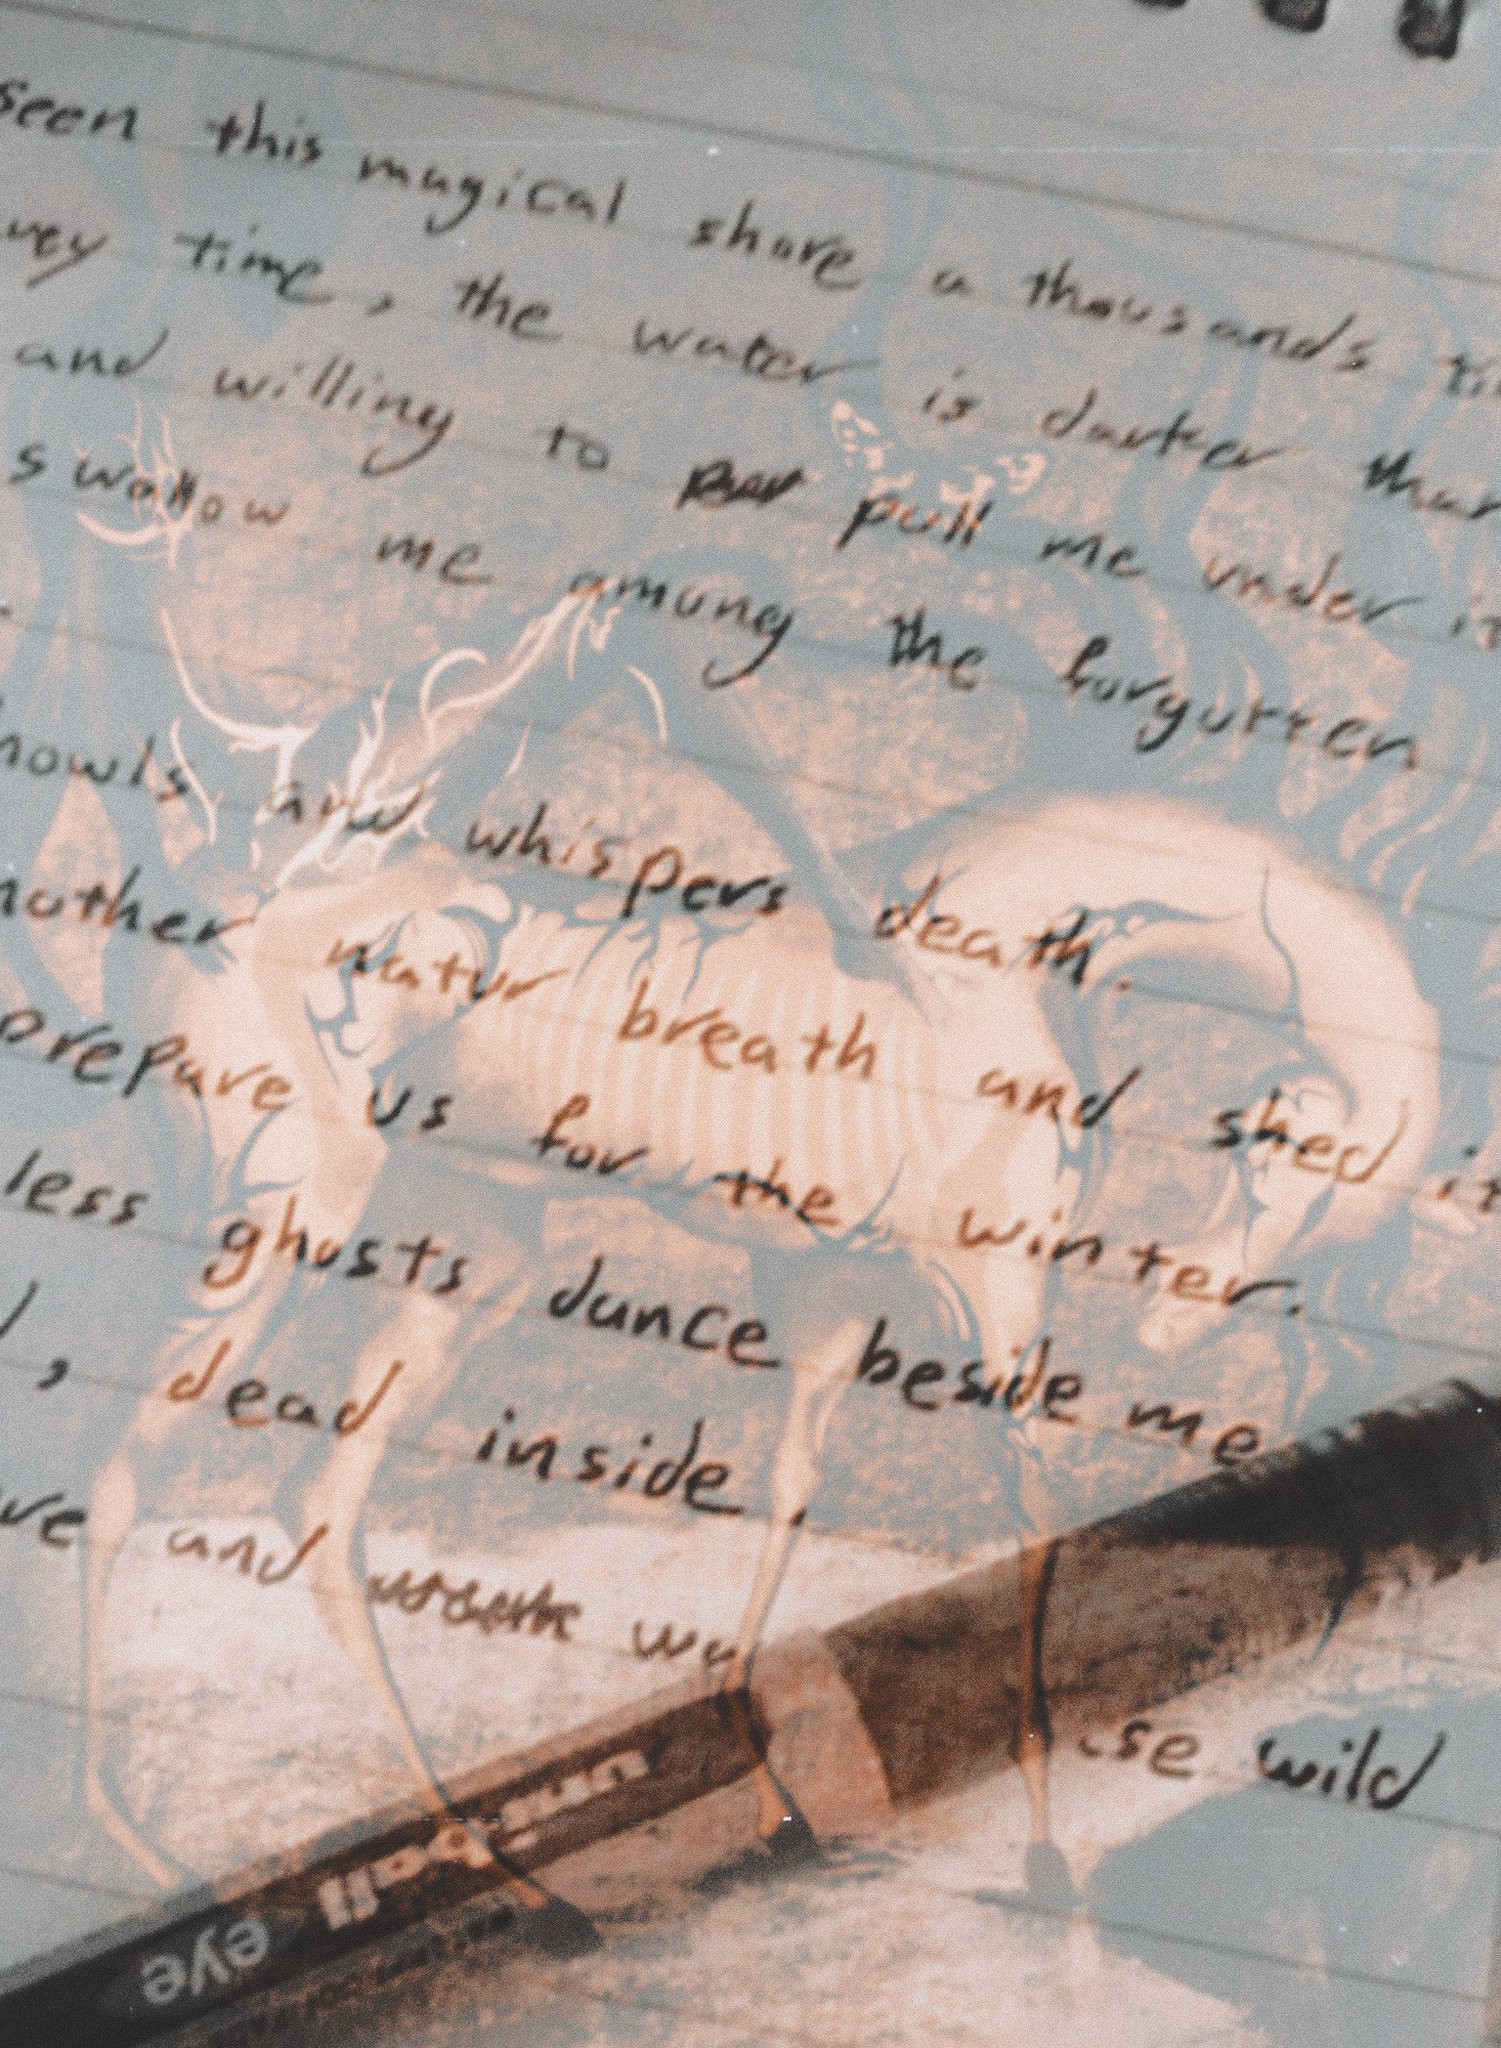 seen this magical shore a thousands
time, the water is darker than
and willing to pull me under
swallow me among the forgotten
howls and whispers death.
mother natur breath and shed
prepare us for the winter.
less ghosts dance beside me
, dead inside,
and
wild
eye
uni-ball